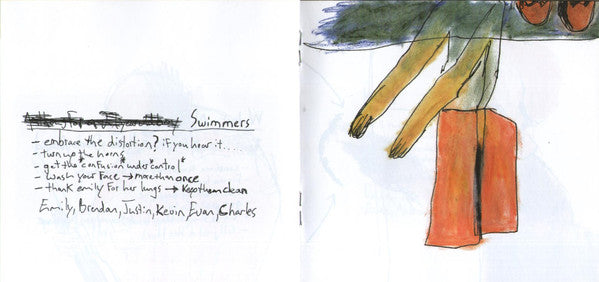 Swimmers
- embrace the distortion? if you hear it.....
- turn up the horns
- get the "confusion under control"
- wash your face → more than once
- thank emily for her lungs → keep them clean
Emily, Brendan, Justin, Kevin, Evan, Charles